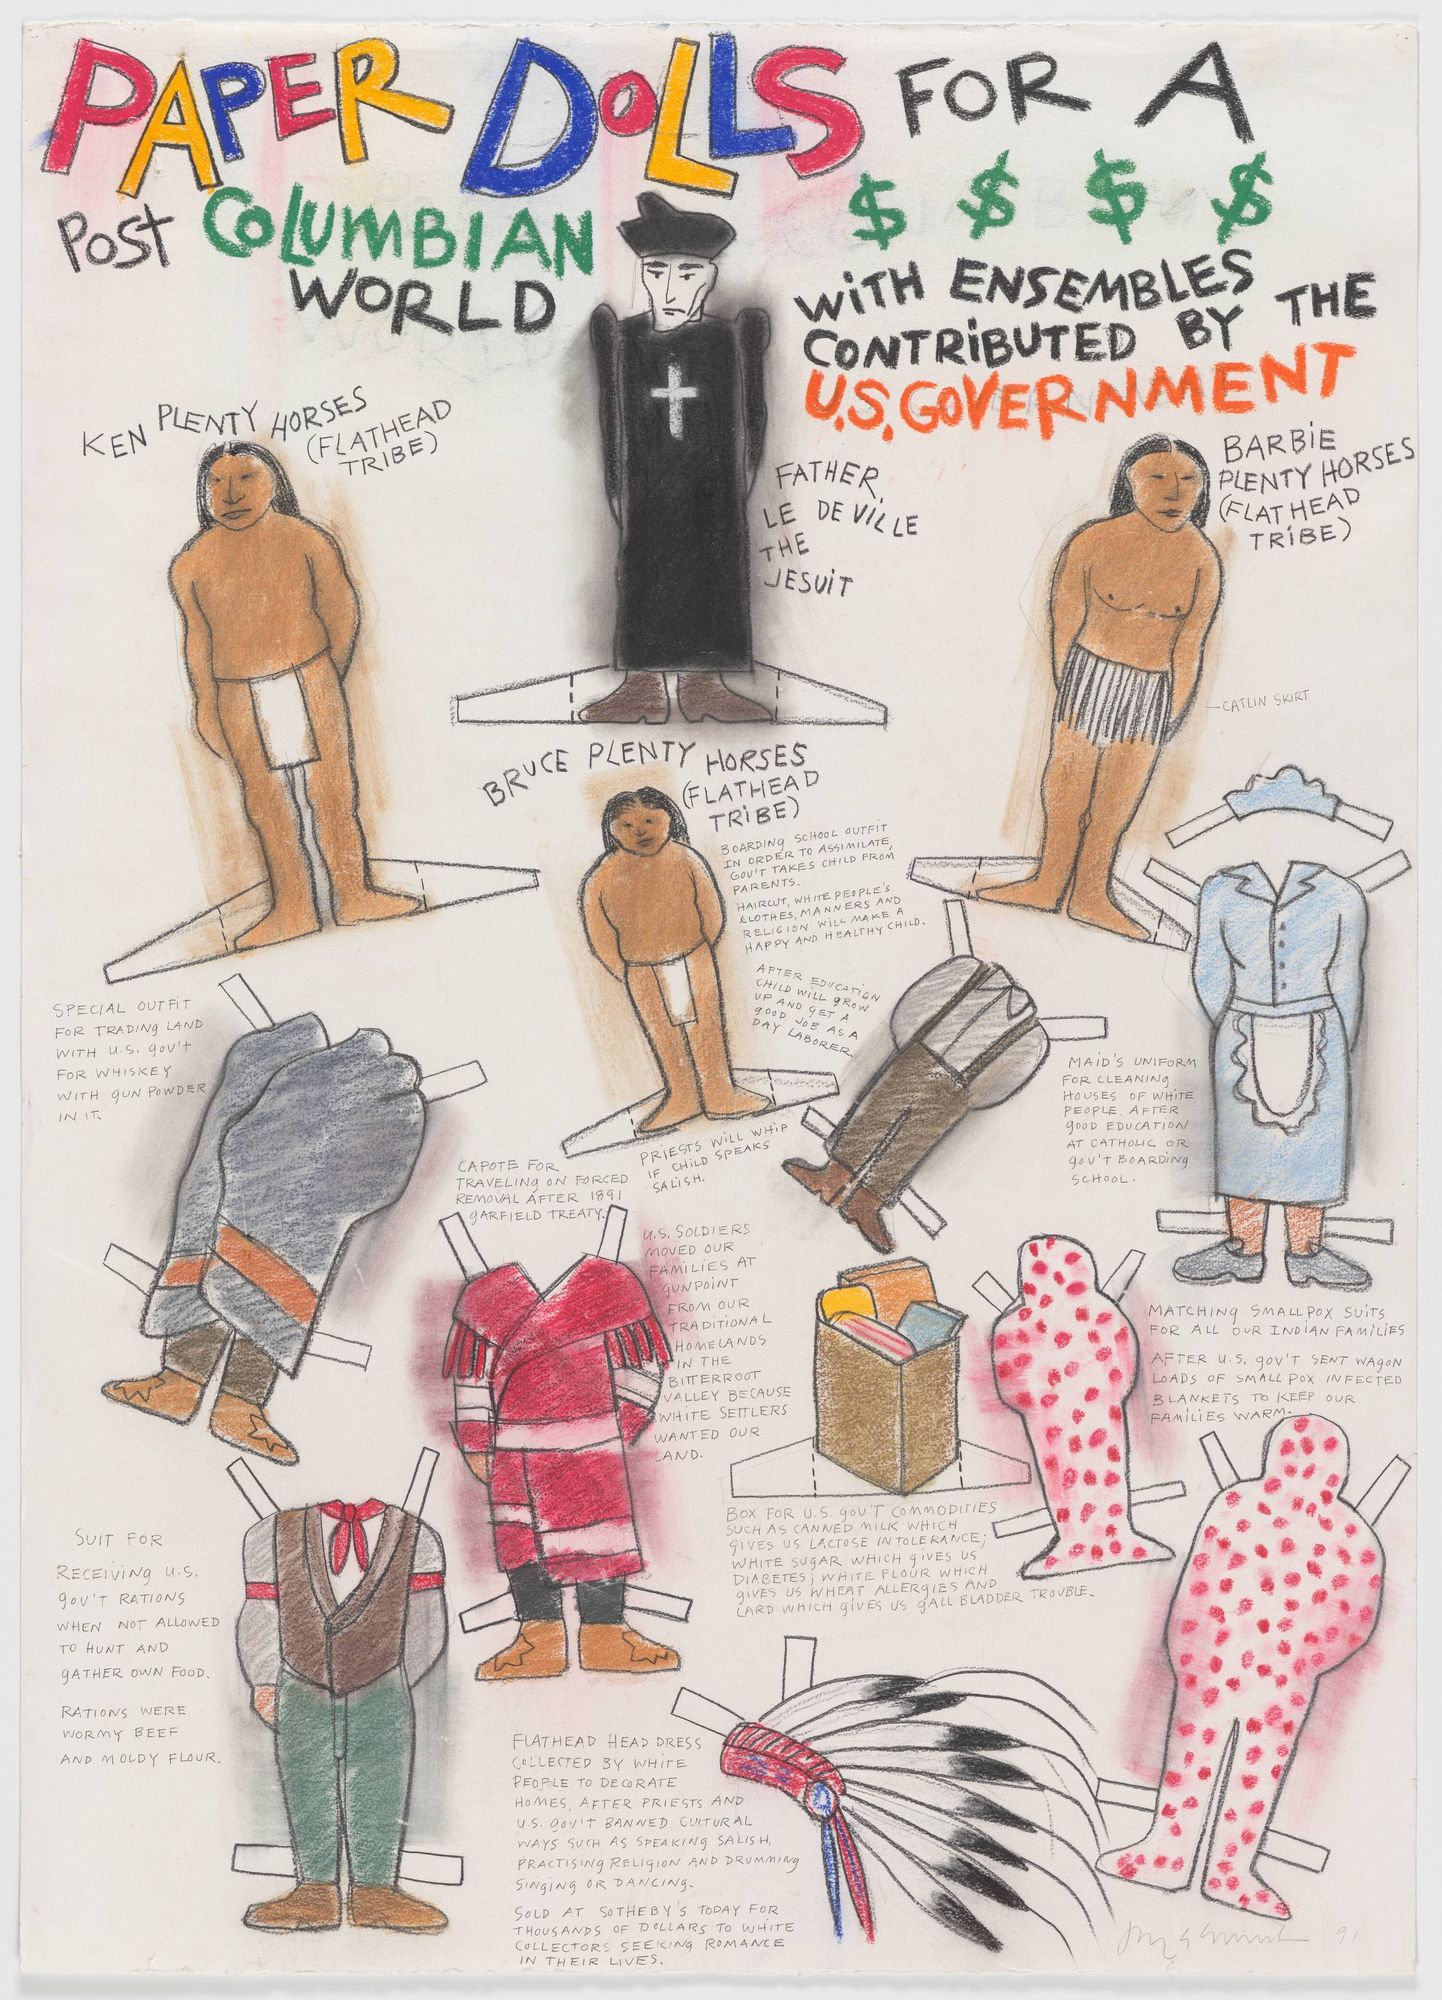 PAPER DOLLS FOR A
POST COLUMBIAN
WORLD
$ $ $ $
WITH ENSEMBLES
CONTRIBUTED BY THE
U.S. GOVERNMENT
KEN PLENTY HORSES
(FLATHEAD
TRIBE)
FATHER
LE DE VILLE
THE
JESUIT
BARBIE
PLENTY HORSES
(FLATHEAD
TRIBE)
CATLIN SKIRT
BRUCE PLENTY HORSES
(FLATHEAD
TRIBE)
BOARDING SCHOOL OUTFIT
IN ORDER TO ASSIMILATE,
GOV'T TAKES CHILD FROM
PARENTS.
HAIRCUT, WHITE PEOPLE'S
CLOTHES, MANNERS AND
RELIGION WILL MAKE A
HAPPY AND HEALTHY CHILD.
AFTER EDUCATION
CHILD WILL GROW
UP AND GET A
GOOD JOB AS A
DAY LABORER.
PRIESTS WILL WHIP
IF CHILD SPEAKS
SALISH.
SPECIAL OUTFIT
FOR TRADING LAND
WITH U.S. GOV'T
FOR WHISKEY
WITH GUN POWDER
IN IT.
MAID'S UNIFORM
FOR CLEANING
HOUSES OF WHITE
PEOPLE AFTER
GOOD EDUCATION
AT CATHOLIC OR
GOV'T BOARDING
SCHOOL.
CAPOTE FOR
TRAVELING ON FORCED
REMOVAL AFTER 1891
GARFIELD TREATY.
U.S. SOLDIERS
MOVED OUR
FAMILIES AT
GUNPOINT
FROM OUR
TRADITIONAL
HOMELANDS
IN THE
BITTERROOT
VALLEY BECAUSE
WHITE SETTLERS
WANTED OUR
LAND.
MATCHING SMALLPOX SUITS
FOR ALL OUR INDIAN FAMILIES
AFTER U.S. GOV'T SENT WAGON
LOADS OF SMALLPOX INFECTED
BLANKETS TO KEEP OUR
FAMILIES WARM.
BOX FOR U.S. GOV'T COMMODITIES
SUCH AS CANNED MILK WHICH
GIVES US LACTOSE INTOLERANCE;
WHITE SUGAR WHICH GIVES US
DIABETES; WHITE FLOUR WHICH
GIVES US WHEAT ALLERGIES AND
LARD WHICH GIVES US GALL BLADDER TROUBLE.
SUIT FOR
RECEIVING U.S.
GOV'T RATIONS
WHEN NOT ALLOWED
TO HUNT AND
GATHER OWN FOOD.
RATIONS WERE
WORMY BEEF
AND MOLDY FLOUR.
FLATHEAD HEADDRESS
COLLECTED BY WHITE
PEOPLE TO DECORATE
HOMES, AFTER PRIESTS AND
U.S. GOV'T BANNED CULTURAL
WAYS SUCH AS SPEAKING SALISH,
PRACTISING RELIGION AND DRUMMING
SINGING OR DANCING.
SOLD AT SOTHEBY'S TODAY FOR
THOUSANDS OF DOLLARS TO WHITE
COLLECTORS SEEKING ROMANCE
IN THEIR LIVES.
91